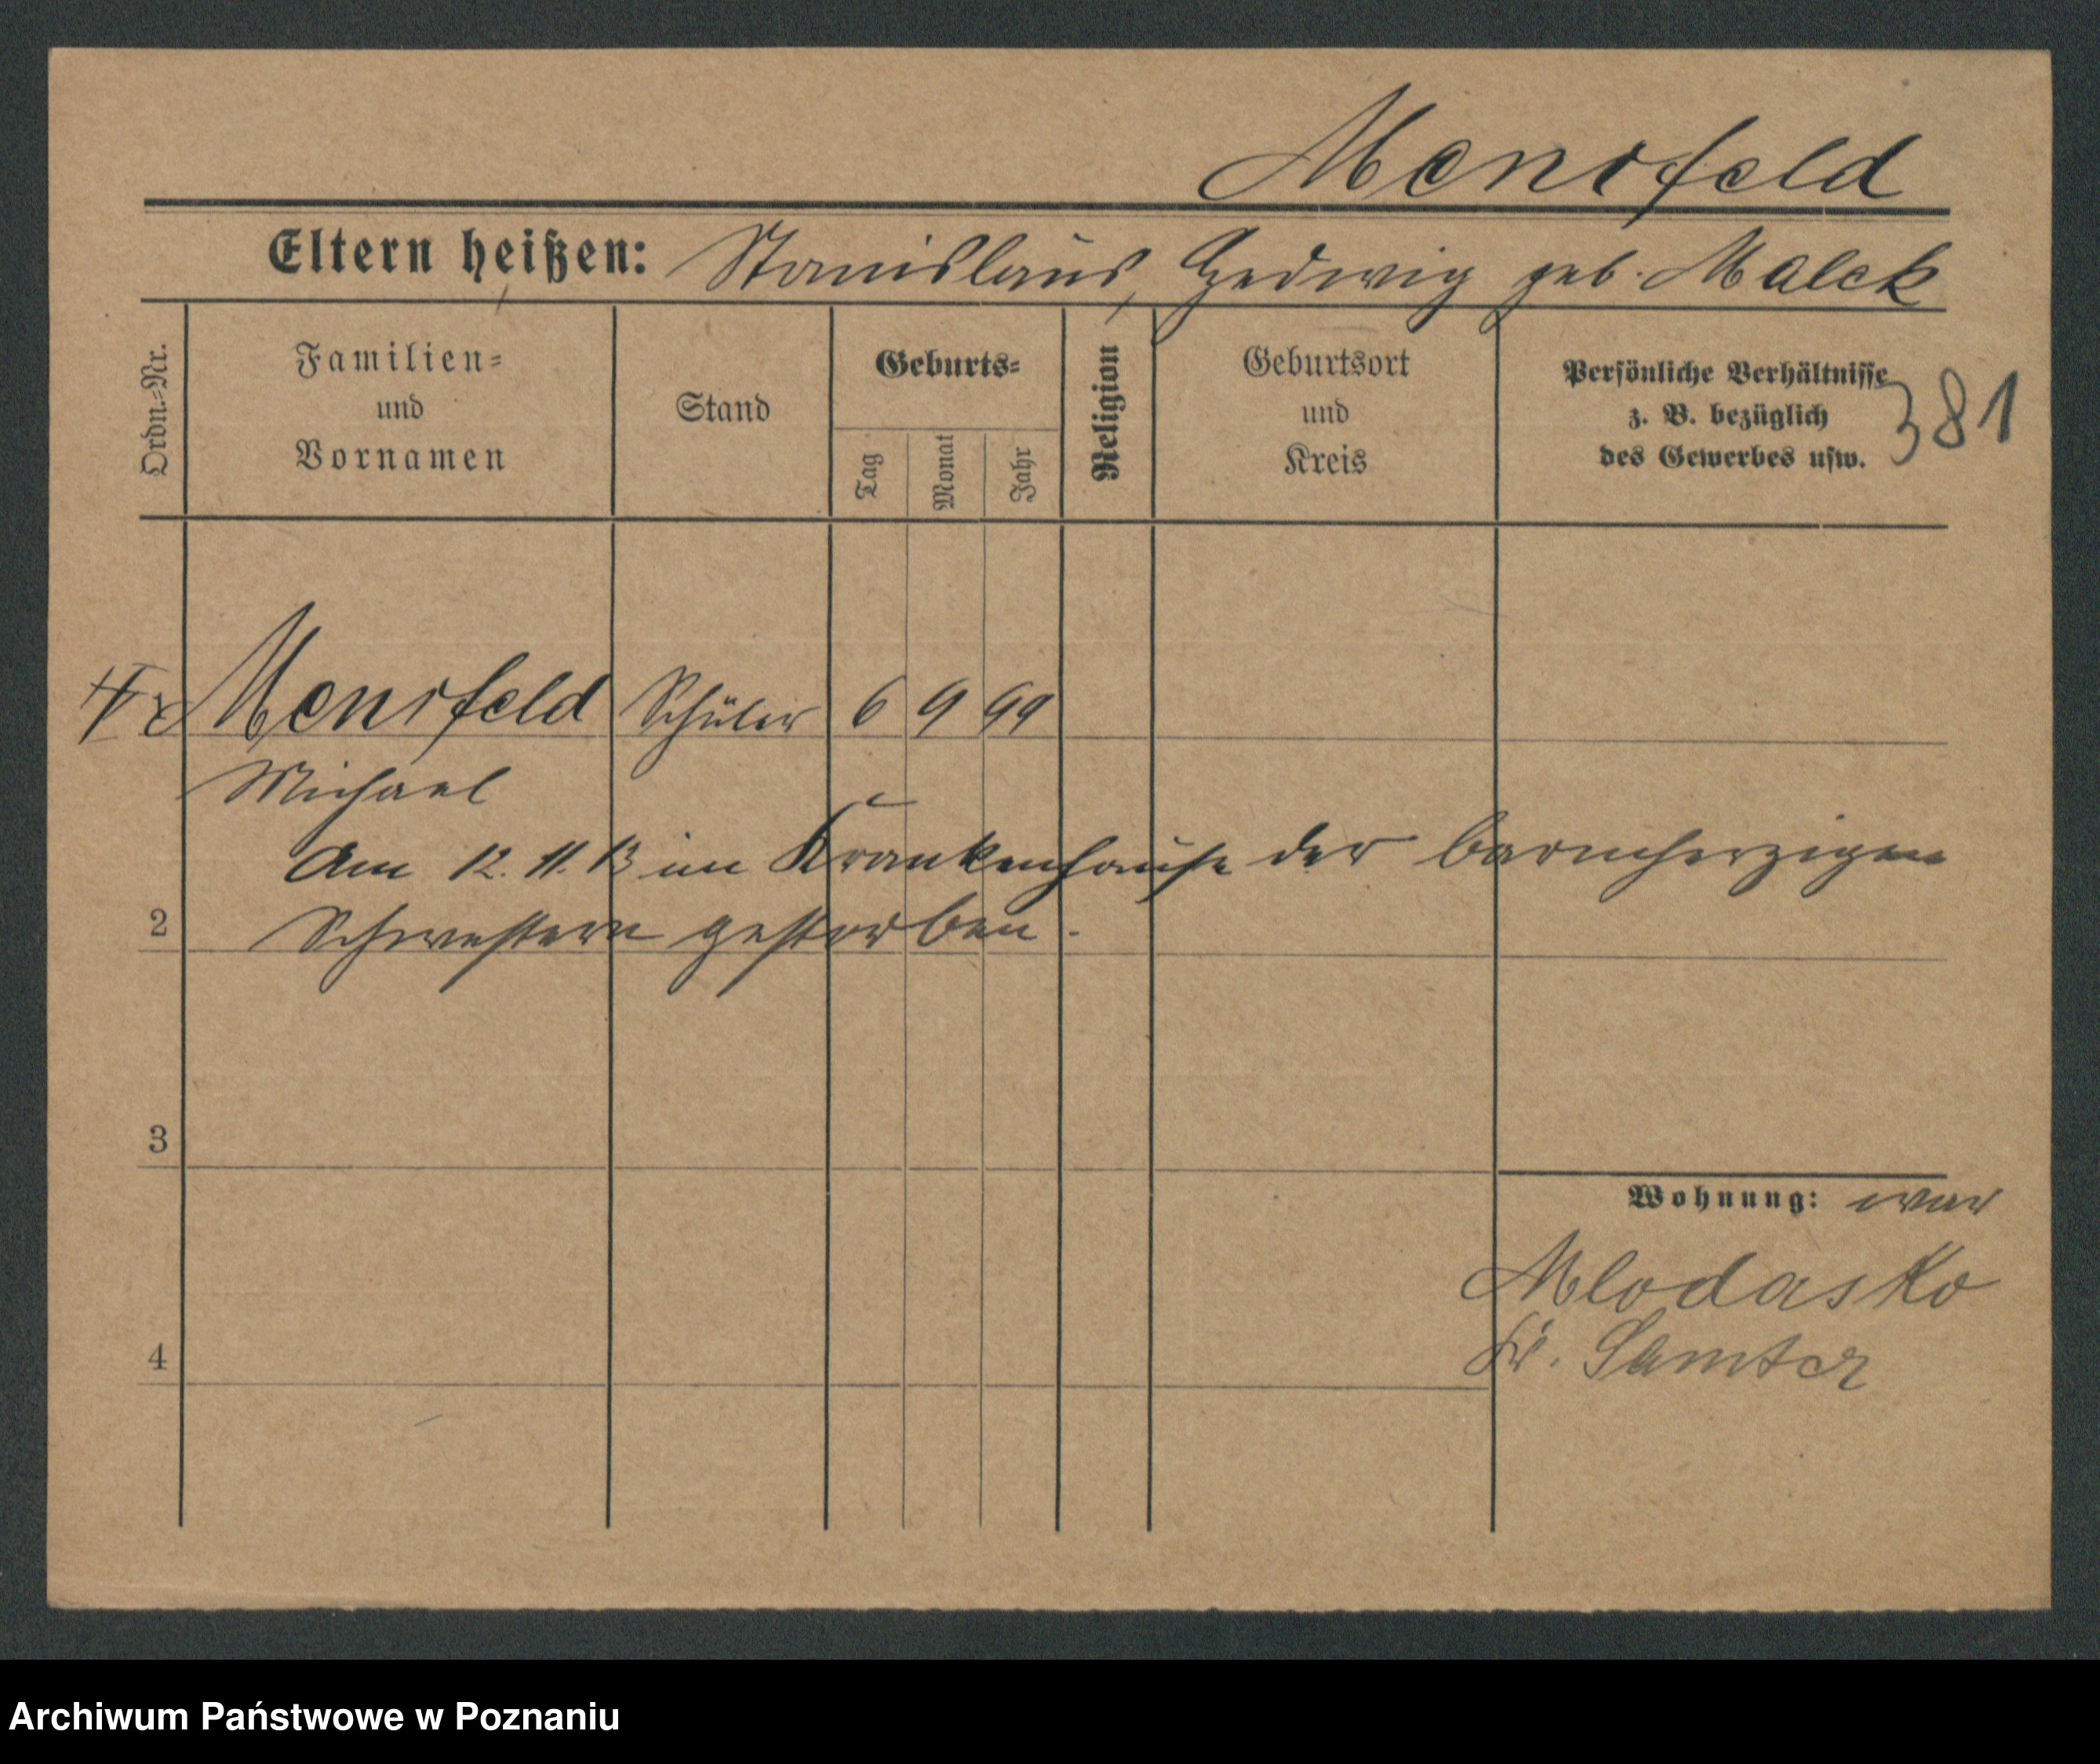 Mensfeld
Eltern heißen: Stanislaus, Hedwig geb. Malek
Ordn.=Nr.
Familien=
und
Vornamen
Stand
Geburts=
Tag
Monat
Jahr
Religion
Geburtsort
und
Kreis
Persönliche Verhältnisse
z. B. bezüglich
des Gewerbes usw.
381
Mensfeld Schüler 6 9 99
Michael
Am 12. 11. 13 im Krankenhause der barmherzigen
2 Schwestern gestorben.
3
Wohnung: war
Mlodasko
Kr. Samter
4
Archiwum Państwowe w Poznaniu